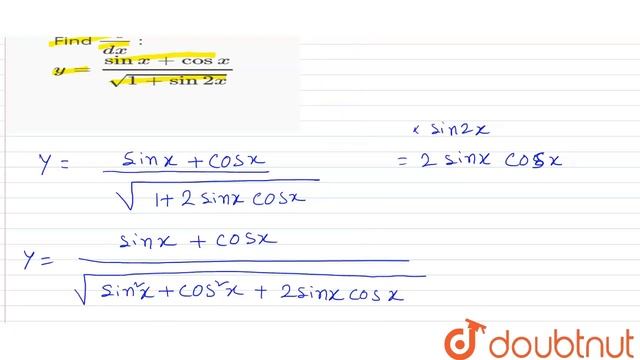 Find dx :
y = sin x + cos x / √1 + sin 2x
× sin2x
Y = sinx + cosx / √1 + 2 sinx cosx
= 2 sinx cosx
Y = sinx + cosx / √sin²x + cos²x + 2sinx cosx
doubtnut